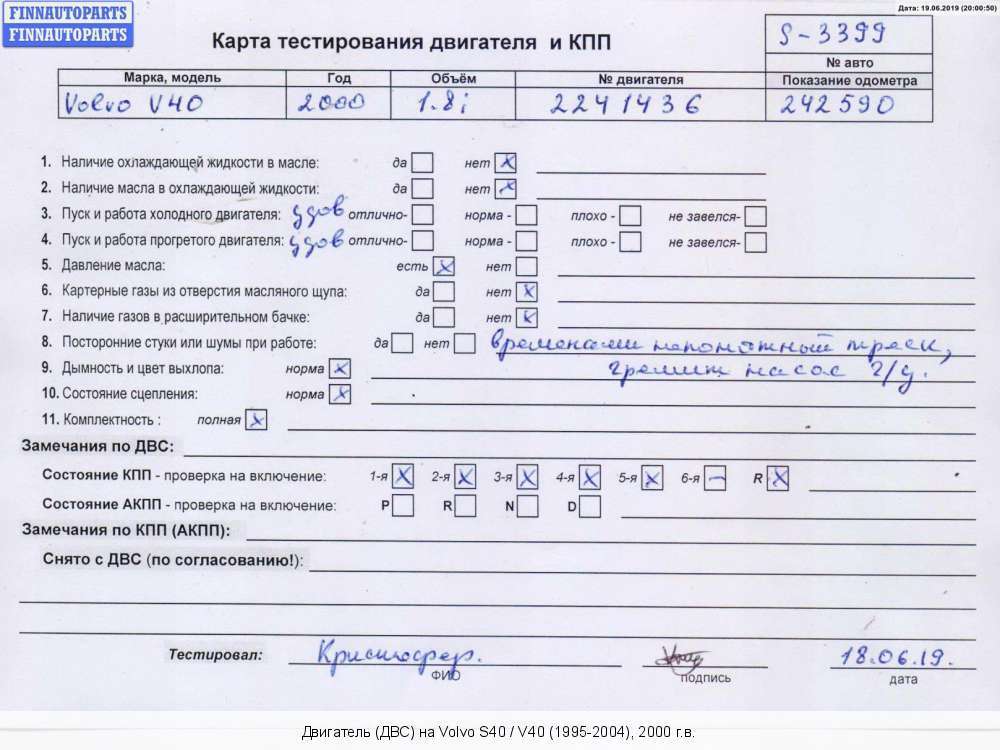 FINNAUTOPARTS
FINNAUTOPARTS
Дата: 19.06.2019 (20:00:50)
Карта тестирования двигателя и КПП
S-3399
№ авто
Марка, модель Год Объём № двигателя Показание одометра
Volvo V40 2000 1.8i 2241436 242590
1. Наличие охлаждающей жидкости в масле: да нет
2. Наличие масла в охлаждающей жидкости: да нет
3. Пуск и работа холодного двигателя: удов отлично- норма - плохо - не завелся-
4. Пуск и работа прогретого двигателя: удов отлично- норма - плохо - не завелся-
5. Давление масла: есть нет
6. Картерные газы из отверстия масляного щупа: да нет
7. Наличие газов в расширительном бачке: да нет
8. Посторонние стуки или шумы при работе: да нет временами непонятный треск,
9. Дымность и цвет выхлопа: норма гремит насос г/у.
10. Состояние сцепления: норма
11. Комплектность : полная
Замечания по ДВС:
Состояние КПП - проверка на включение: 1-я 2-я 3-я 4-я 5-я 6-я R
Состояние АКПП - проверка на включение: P R N D
Замечания по КПП (АКПП):
Снято с ДВС (по согласованию!):
Тестировал: 18.06.19.
ФИО подпись дата
Двигатель (ДВС) на Volvo S40 / V40 (1995-2004), 2000 г.в.